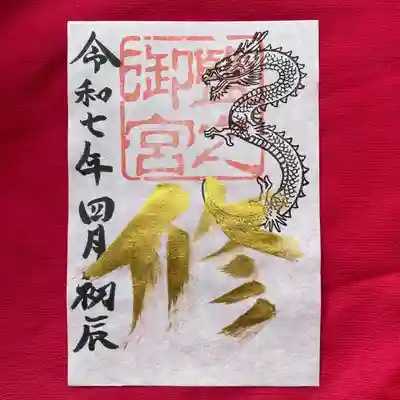 御宮
修
令和七年 四月 初辰